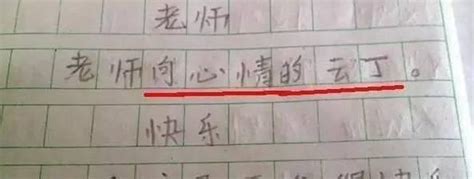 老师
老师向心情的云丁。
快乐